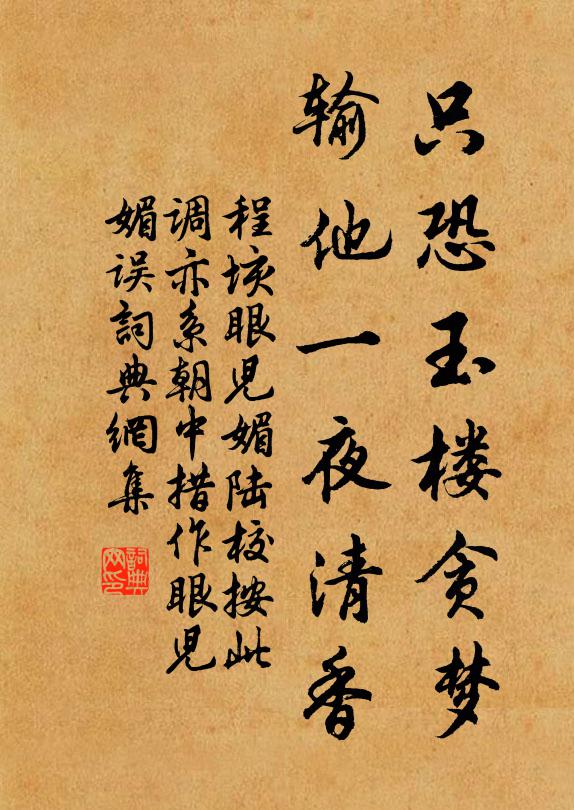 只恐玉楼贪梦
输他一夜清香
程垓眼児媚陆校按此
调亦系朝中措作眼児
媚误詞典網集
詞典
网印